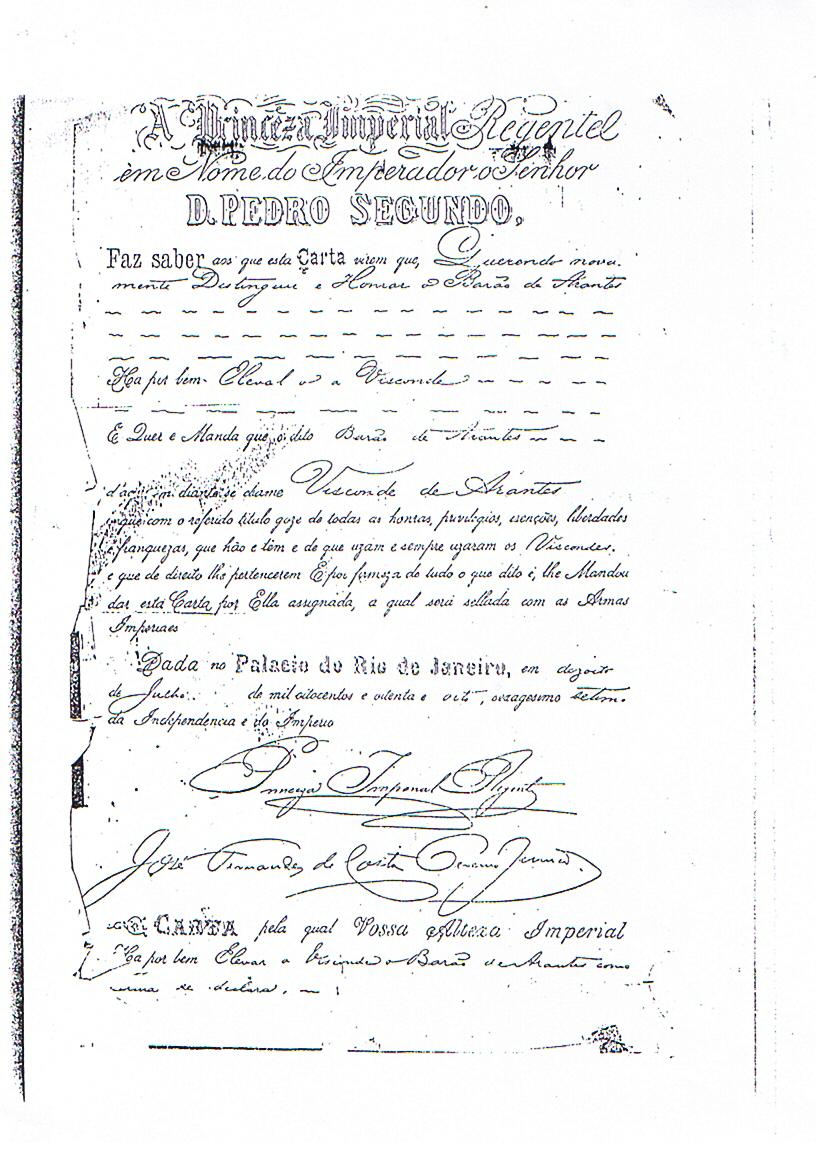 A Princeza Imperial Regente
em Nome do Imperador o Senhor
D. PEDRO SEGUNDO,
Faz saber aos que esta Carta virem que, Querendo nova-
mente Destinguir e Honrar o Barão de Arantes
Ha por bem Eleval o a Visconde
E Quer e Manda que o dito Barão de Arantes
d'aqui em diante se chame Visconde de Arantes
e que com o referido titulo goze de todas as honras, privilegios, esenções, liberdades
e franquezas, que hão e têm e de que uzam e sempre uzaram os Viscondes,
e que de direito lhe pertencerem E por firmeza de tudo o que dito é, lhe Mandou
dar esta Carta por Ella assignada, a qual será sellada com as Armas
Imperiaes
Dada no Palacio do Rio de Janeiro, em dezoito
de Julho de mil oitocentos e oitenta e oito, sexagesimo setimo
da Independencia e do Imperio
Princeza Imperial Regente
José Fernandes da Costa Pereira Junior.
CARTA pela qual Vossa Alteza Imperial
Ha por bem Elevar a Visconde o Barão de Arantes como
acima se declara.